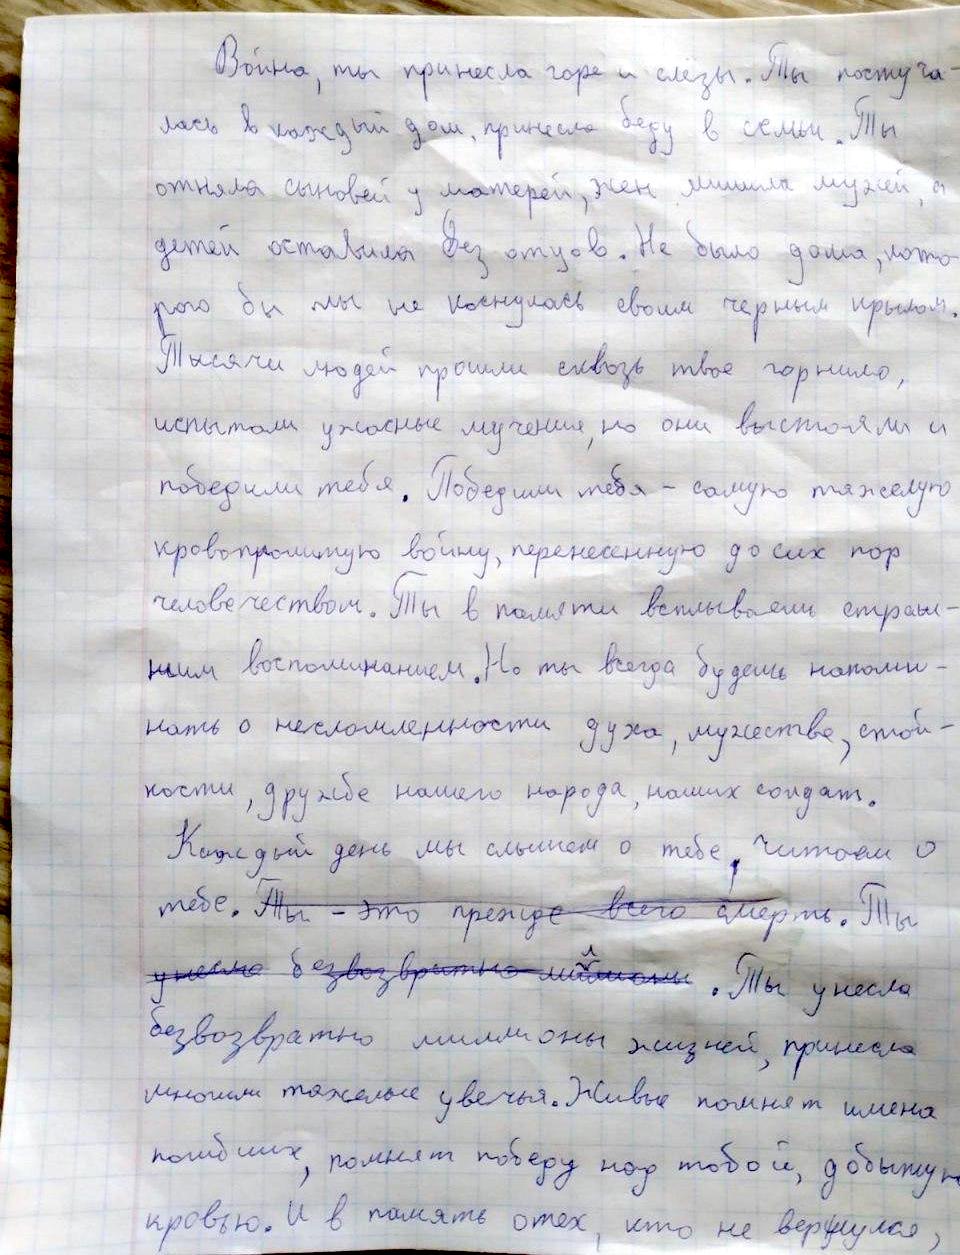 Война, ты принесла горе и слёзы. Ты постуча-
лась в каждый дом, принесла беду в семьи. Ты
отняла сыновей у матерей, жен лишила мужей, а
детей оставила без отцов. Не было дома, кото-
рого бы ты не коснулась своим черным крылом.
Тысячи людей прошли сквозь твое горнило,
испытали ужасные мучения, но они выстояли и
победили тебя. Победили тебя - самую тяжелую
кровопролитную войну, перенесенную до сих пор
человечеством. Ты в памяти всплываешь страш-
ным воспоминанием. Но ты всегда будешь напоми-
нать о несломленности духа, мужестве, стой-
кости, дружбе нашего народа, наших солдат.
Каждый день мы слышем о тебе, читаем о
тебе. Ты - это прежде всего смерть. Ты
унесла безвозвратно миллионы . Ты унесла
безвозвратно миллионы жизней, принесла
многим тяжелые увечья. Живые помнят имена
погибших, помнят победу над тобой, добытую
кровью. И в память о тех, кто не вернулся,